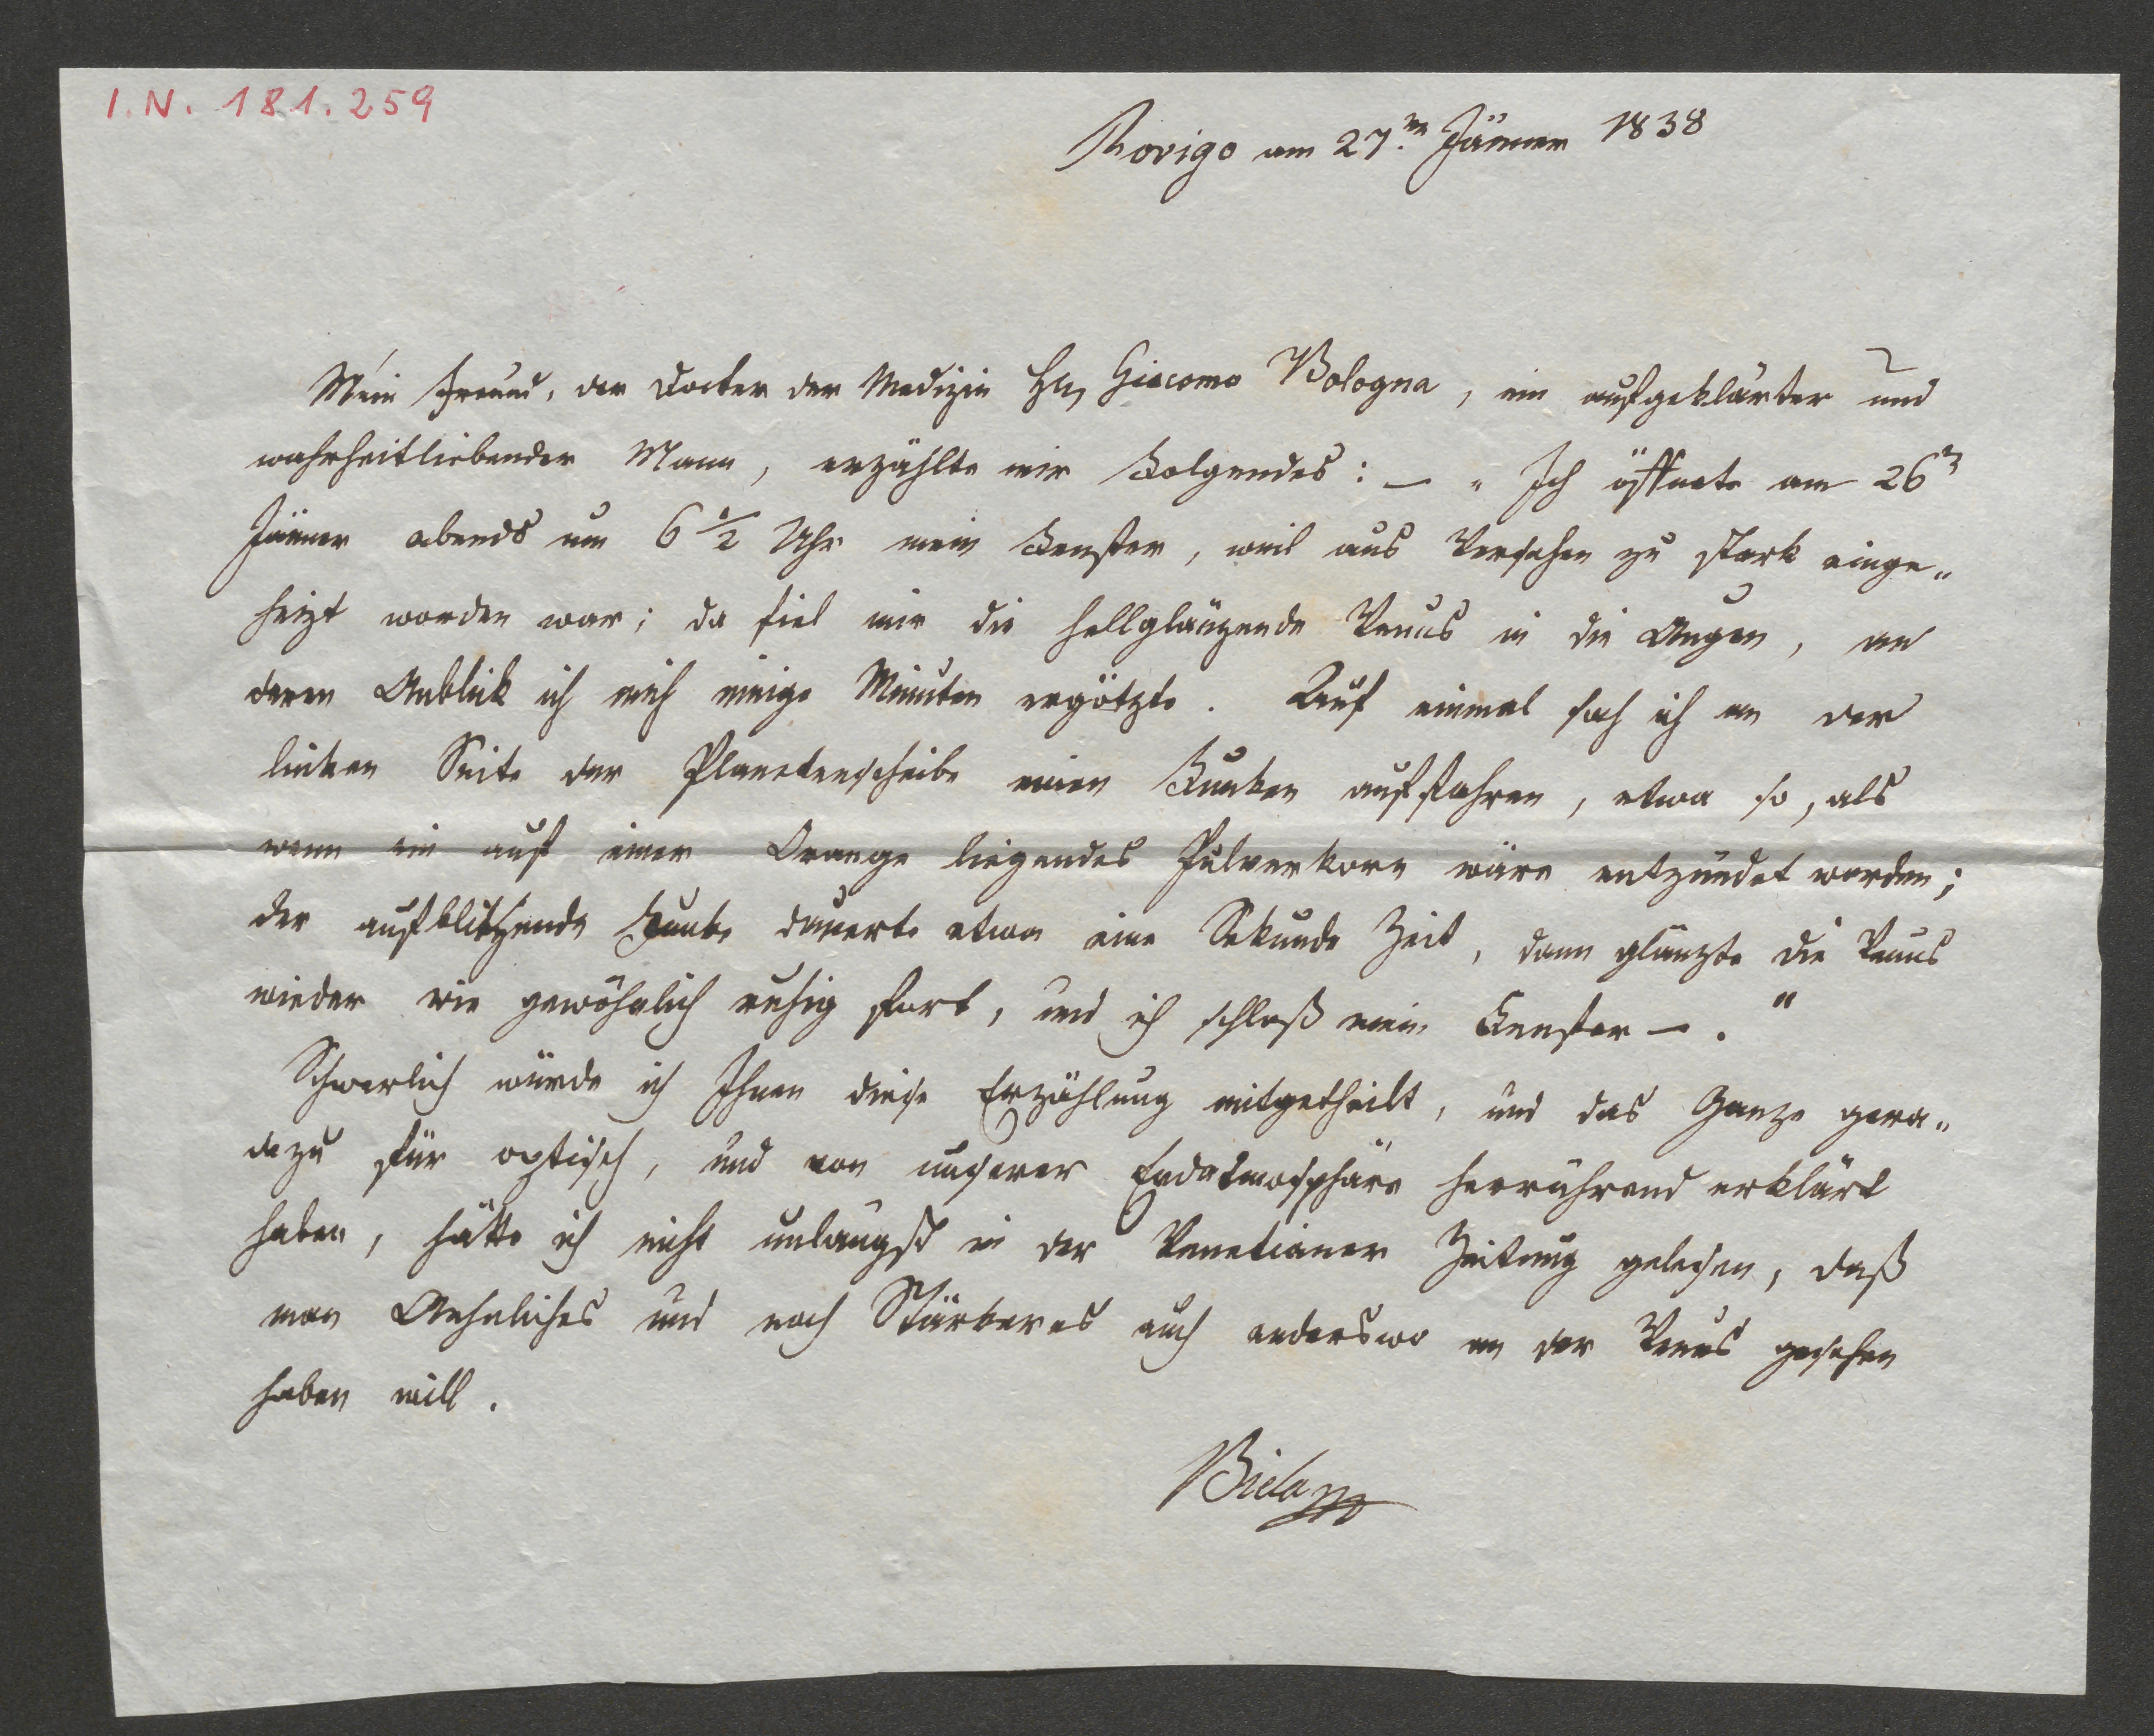 I.N. 181.259
Rovigo am 27.ten Jänner 1838
Mein Freund, der Doctor der Medizin Hr. Giacomo Bologna, ein aufgeklärter und
wahrheitliebender Mann, erzählte mir Folgendes: — „Ich öffnete am 26n
Jänner abends um 6 1/2 Uhr mein Fenster, weil aus Versehen zu stark einge„
heizt worden war; da fiel mir die hellglänzende Venus in die Augen, an
deren Anblick ich mich einige Minuten ergötzte. Auf einmal sah ich an der
linken Seite der Planetenscheibe einen Funken auffahren, etwa so, als
wenn ein auf einer Orange liegendes Pulverkorn wäre entzündet worden;
der aufblitzende Funke dauerte etwa eine Sekunde Zeit, dann glänzte die Venus
wieder wie gewöhnlich ruhig fort, und ich schloß mein Fenster —."
Schwerlich würde ich Ihnen diese Erzählung mitgetheilt, und das Ganze gera„
dezu für optisch, und von unserer Erdatmosphäre herrührend erklärt
haben, hätte ich nicht unlängst in der Venetianer Zeitung gelesen, daß
man Aehnliches und noch Stärkeres auch anderswo an der Venus gesehen
haben will.
Biela